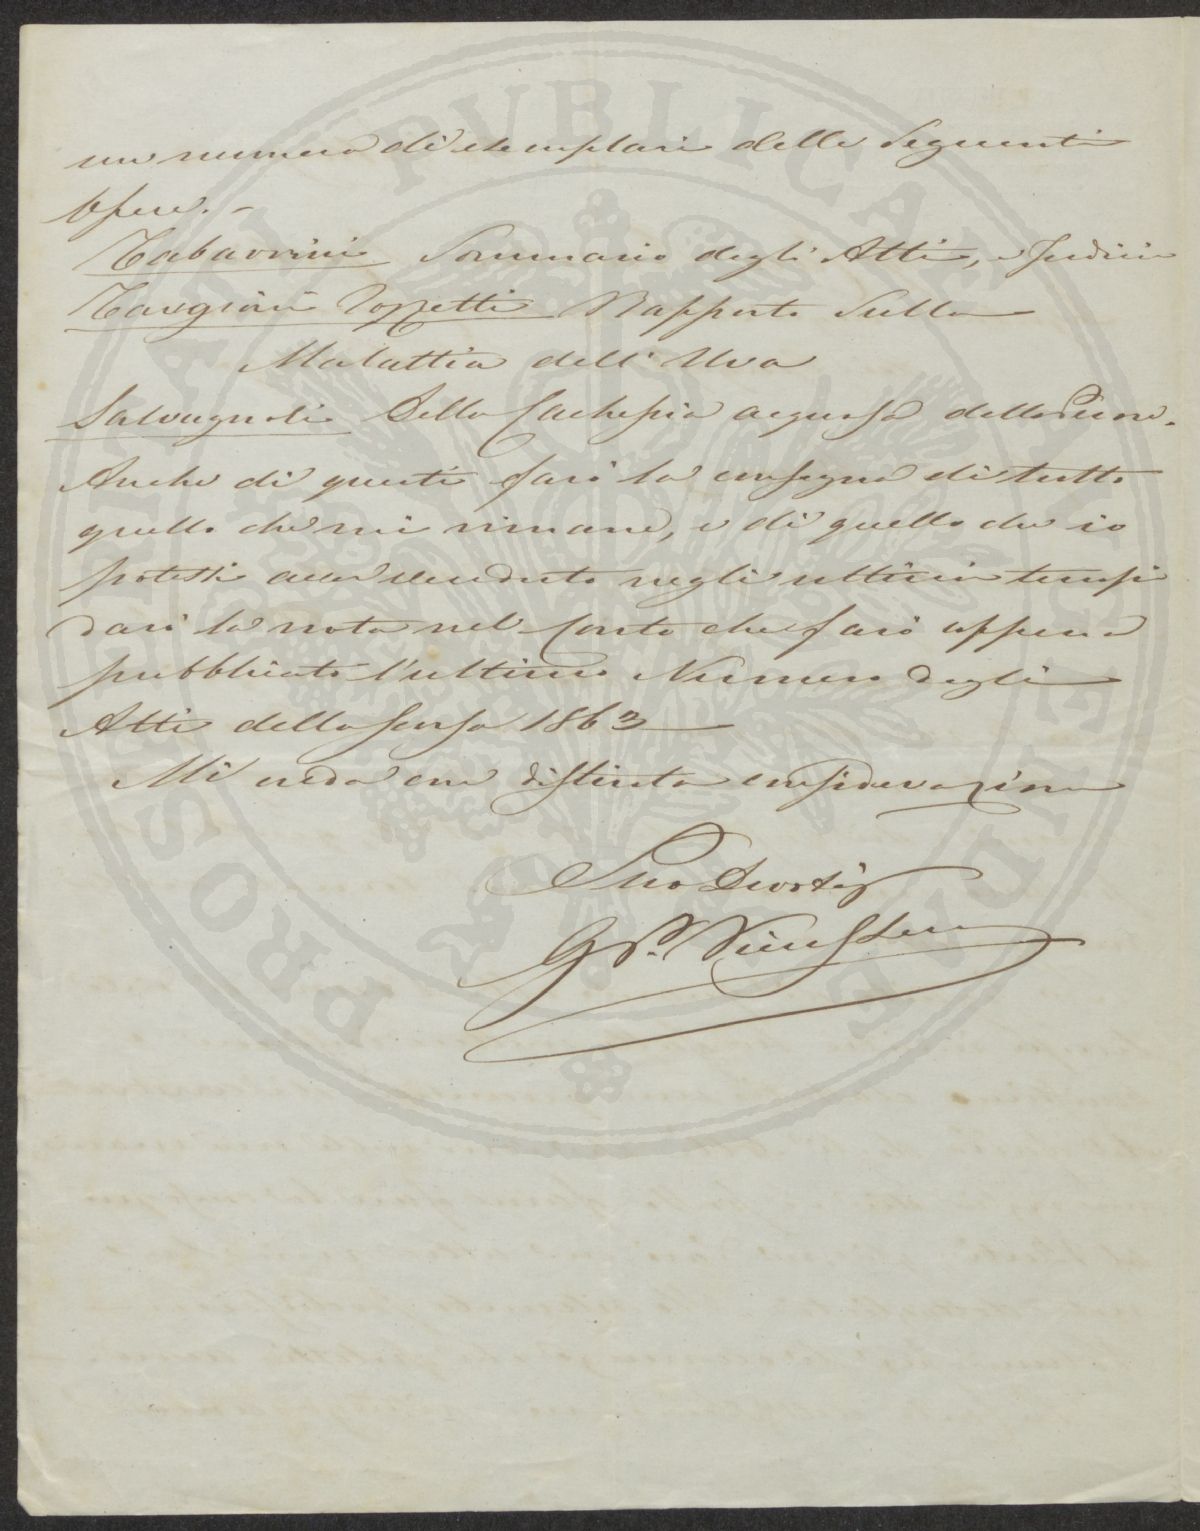 un numero di esemplari delle seguenti
Opere. -
Tabarrini Sommario degli Atti, e Indici
Targioni Tozzetti Rapporto sulla
Malattia dell'Uva
Salvagnoli Della Cachessia acquosa delle Pecore.
Anche di questi farò la consegna di tutto
quello che mi rimane, e di quello che io
potessi aver venduto negli ultimi tempi
darò la nota nel Conto che farò appena
pubblicato l'ultimo Numero degli
Atti della scorso 1863
Mi creda con distinta considerazione
Suo Devotis
G P. Vieusseux
PROSPERITATI PVBLICAE AVGENDAE